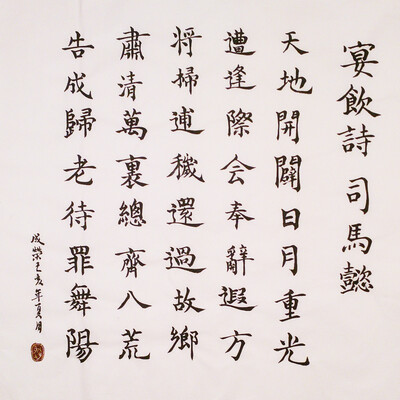 宴飲詩 司馬懿
天地開闢日月重光
遭逢際会奉辭遐方
將掃逋穢還過故鄉
肅清萬裏總齊八荒
告成歸老待罪舞陽
己亥年夏月